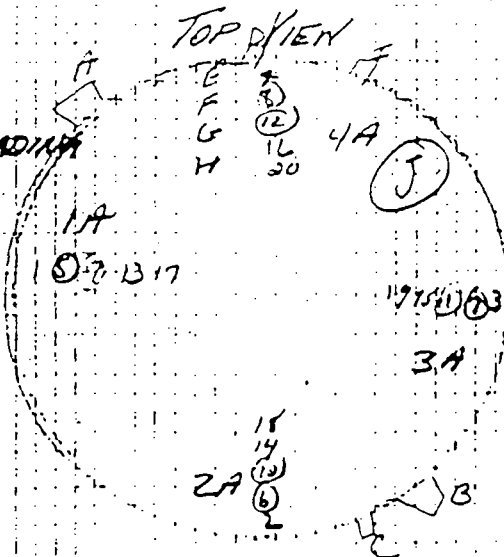 TOP VIEW
A
E 4
F 8
G 12
H 16
20
4A
J
1A
1 5 9 13 17
19 15 11 7 3
3A
18
14
10
2A 6
2
B
C